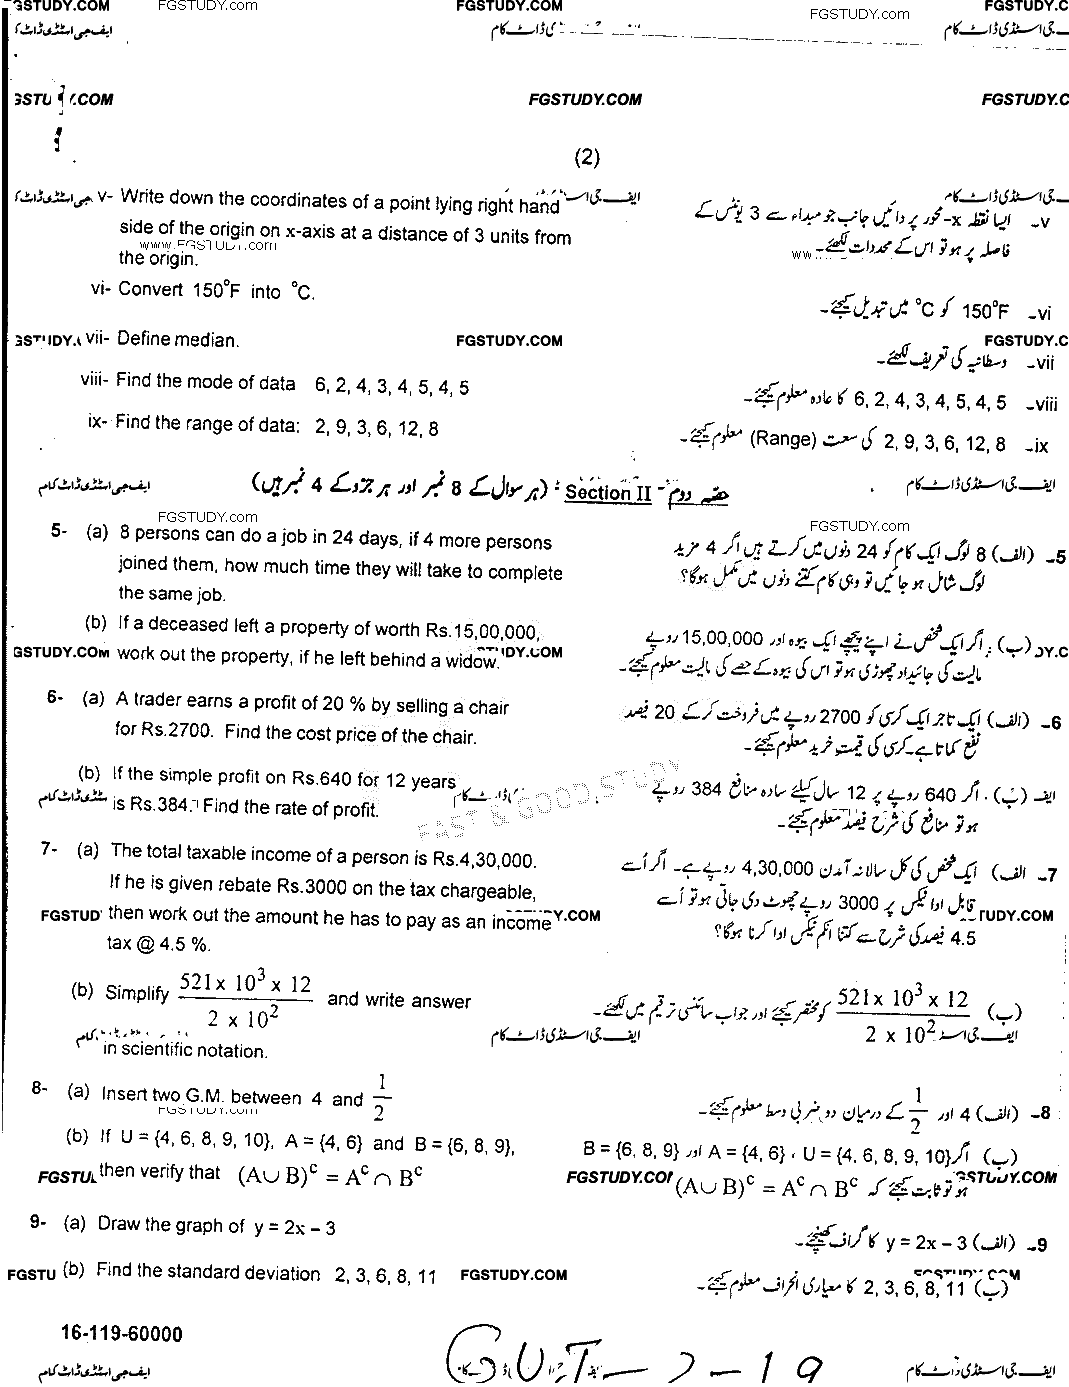 GSTUDY.COM FGSTUDY.com FGSTUDY.COM FGSTUDY.com FGSTUDY.C
ایف جی اسٹڈی ڈاٹ کام
FGSTUDY.COM FGSTUDY.C
(2)
v- Write down the coordinates of a point lying right hand
side of the origin on x-axis at a distance of 3 units from
www.FGSTUDY.com
the origin.
v- ایسا نقطہ x-محور پر دائیں جانب جو مبداء سے 3 یونٹس کے
فاصلہ پر ہو تو اس کے محددات لکھئے۔
vi- Convert 150°F into °C.
vi- 150°F کو °C میں تبدیل کیجئے۔
GSTUDY. vii- Define median. FGSTUDY.COM FGSTUDY.C
vii- وسطانیہ کی تعریف لکھئے۔
viii- Find the mode of data 6, 2, 4, 3, 4, 5, 4, 5
viii- 6, 2, 4, 3, 4, 5, 4, 5 کا عادہ معلوم کیجئے۔
ix- Find the range of data: 2, 9, 3, 6, 12, 8
ix- 2, 9, 3, 6, 12, 8 کی سعت (Range) معلوم کیجئے۔
ایف جی اسٹڈی ڈاٹ کام
حصہ دوم - Section II : (ہر سوال کے 8 نمبر اور ہر جزو کے 4 نمبر ہیں)
ایف جی اسٹڈی ڈاٹ کام
FGSTUDY.com FGSTUDY.com
5- (a) 8 persons can do a job in 24 days, if 4 more persons
joined them, how much time they will take to complete
the same job.
5- (الف) 8 لوگ ایک کام کو 24 دنوں میں کرتے ہیں اگر 4 مزید
لوگ شامل ہو جائیں تو وہی کام کتنے دنوں میں مکمل ہوگا؟
(b) If a deceased left a property of worth Rs.15,00,000,
GSTUDY.COM work out the property, if he left behind a widow.
(ب) اگر ایک شخص نے اپنے پیچھے ایک بیوہ اور 15,00,000 روپے
مالیت کی جائیداد چھوڑی ہو تو اس کی بیوہ کے حصے کی مالیت معلوم کیجئے۔
6- (a) A trader earns a profit of 20 % by selling a chair
for Rs.2700. Find the cost price of the chair.
6- (الف) ایک تاجر ایک کرسی کو 2700 روپے میں فروخت کر کے 20 فیصد
نفع کماتا ہے۔ کرسی کی قیمت خرید معلوم کیجئے۔
(b) If the simple profit on Rs.640 for 12 years
is Rs.384. Find the rate of profit.
FAST & GOOD STUDY
(ب) اگر 640 روپے پر 12 سال کیلئے سادہ منافع 384 روپے
ہو تو منافع کی شرح فیصد معلوم کیجئے۔
7- (a) The total taxable income of a person is Rs.4,30,000.
If he is given rebate Rs.3000 on the tax chargeable,
FGSTUD then work out the amount he has to pay as an income
tax @ 4.5 %.
7- الف) ایک شخص کی کل سالانہ آمدن 4,30,000 روپے ہے۔ اگر اُسے
قابل ادا ٹیکس پر 3000 روپے چھوٹ دی جاتی ہو تو اُسے
4.5 فیصد کی شرح سے کتنا انکم ٹیکس ادا کرنا ہوگا؟
(b) Simplify 521 x 10³ x 12 / 2 x 10² and write answer
in scientific notation.
(ب) 521 x 10³ x 12 / 2 x 10² کو مختصر کیجئے اور جواب سائنسی ترقیم میں لکھئے۔
ایف جی اسٹڈی ڈاٹ کام
8- (a) Insert two G.M. between 4 and 1/2
FGSTUDY.com
8- (الف) 4 اور 1/2 کے درمیان دو ضربی وسط معلوم کیجئے۔
(b) If U = {4, 6, 8, 9, 10}, A = {4, 6} and B = {6, 8, 9},
then verify that (A∪B)ᶜ = Aᶜ ∩ Bᶜ
(ب) اگر U = {4, 6, 8, 9, 10} ، A = {4, 6} اور B = {6, 8, 9}
ہو تو ثابت کیجئے کہ (A∪B)ᶜ = Aᶜ ∩ Bᶜ
9- (a) Draw the graph of y = 2x – 3
9- (الف) y = 2x – 3 کا گراف کھینچئے۔
FGSTU (b) Find the standard deviation 2, 3, 6, 8, 11 FGSTUDY.COM
(ب) 2, 3, 6, 8, 11 کا معیاری انحراف معلوم کیجئے۔
16-119-60000
ایف جی اسٹڈی ڈاٹ کام
GUJ-2-19
ایف جی اسٹڈی ڈاٹ کام